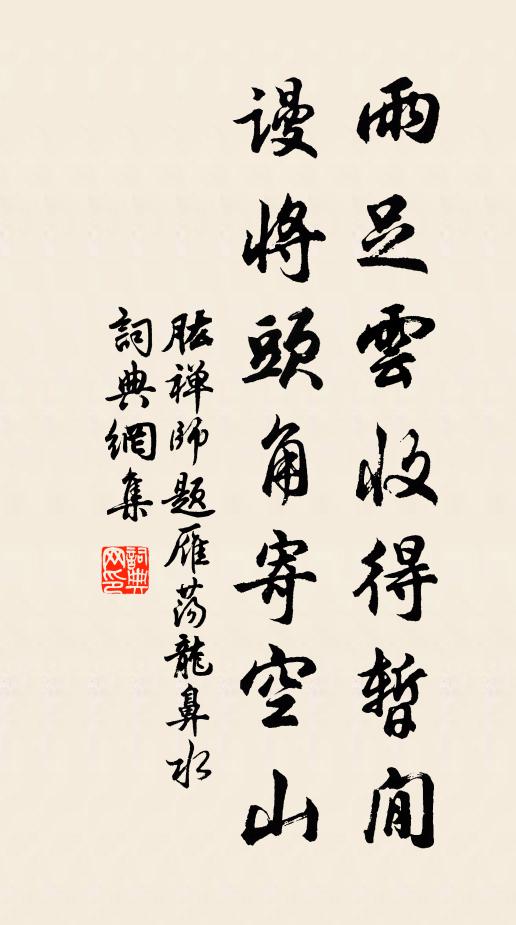 雨足雲收得暫閒
謾將頭角寄空山
肱禅師題雁蕩龍鼻水
詞典網集
詞典
网印